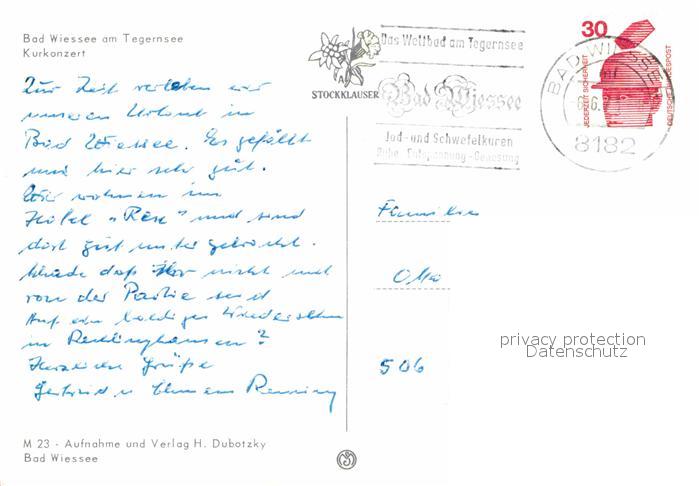 Bad Wiessee am Tegernsee
Kurkonzert
Zur Zeit verleben wir
unseren Urlaub in
Bad Wiessee. Es gefällt
uns hier sehr gut.
Wir wohnen im
Hotel "Rex" und sind
dort gut untergebracht.
Schade daß Ihr nicht mit
von der Partie seid
Auf ein baldiges Wiedersehen
in Recklinghausen?
Herzliche Grüße
Gertrud u.
STOCKLAUSER
Das Weltbad am Tegernsee
Bad Wiessee
Jod- und Schwefelkuren
Ruhe - Entspannung - Genesung
30
JEDERZEIT SICHERHEIT
DEUTSCHE BUNDESPOST
BAD WIESSEE
8182
Familie
506
privacy protection
Datenschutz
M 23 - Aufnahme und Verlag H. Dubotzky
Bad Wiessee